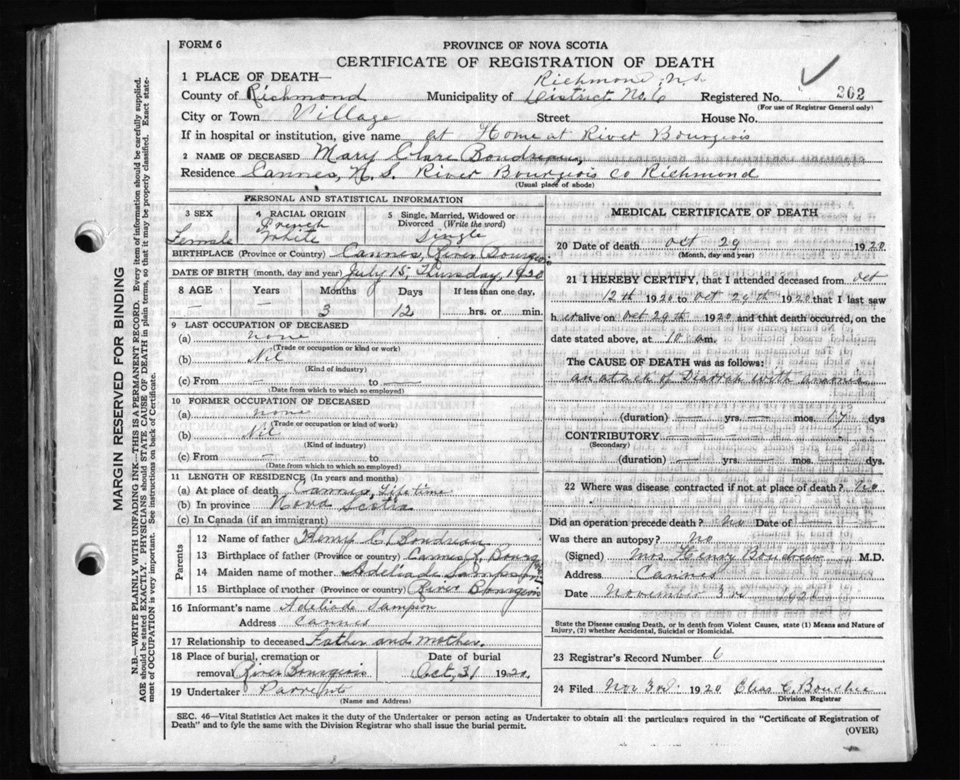 FORM 6
PROVINCE OF NOVA SCOTIA
CERTIFICATE OF REGISTRATION OF DEATH
1 PLACE OF DEATH— Richmond N.S.
County of Richmond Municipality of District No. 6 Registered No. 262
(For use of Registrar General only)
City or Town Village Street House No.
If in hospital or institution, give name at Home at River Bourgeois
2 NAME OF DECEASED Mary Clare Boudreau,
Residence Cannes, N.S. River Bourgeois Co Richmond
(Usual place of abode)
PERSONAL AND STATISTICAL INFORMATION
3 SEX 4 RACIAL ORIGIN 5 Single, Married, Widowed or Divorced (Write the word)
Female French White Single
BIRTHPLACE (Province or Country) Cannes, River Bourgeois
DATE OF BIRTH (month, day and year) July 15, Thursday, 1920
8 AGE Years Months Days If less than one day,
— 3 12 hrs. or min.
9 LAST OCCUPATION OF DECEASED
(a) none
(Trade or occupation or kind or work)
(b) Nil
(Kind of industry)
(c) From — to —
(Date from which to which so employed)
10 FORMER OCCUPATION OF DECEASED
(a) none
(Trade or occupation or kind of work)
(b) Nil
(Kind of industry)
(c) From — to —
(Date from which to which so employed)
11 LENGTH OF RESIDENCE (In years and months)
(a) At place of death Cannes, Lifetime
(b) In province Nova Scotia
(c) In Canada (if an immigrant)
Parents
12 Name of father Henry C. Boudreau
13 Birthplace of father (Province or country) Cannes R. Bourg
14 Maiden name of mother Adeliade Sampson
15 Birthplace of mother (Province or country) River Bourgeois
16 Informant's name Adeliade Sampson
Address Cannes
17 Relationship to deceased Father and mother.
18 Place of burial, cremation or removal River Bourgeois Date of burial Oct, 31 1920.
19 Undertaker
(Name and Address)
MEDICAL CERTIFICATE OF DEATH
20 Date of death Oct 29 1920
(Month, day and year)
21 I HEREBY CERTIFY, that I attended deceased from Oct
12th 1920 to Oct 29th 1920 that I last saw
her alive on Oct 29th 1920 and that death occurred, on the
date stated above, at 10 am.
The CAUSE OF DEATH was as follows:
an attack of with
(duration) — yrs. — mos. 17 dys
CONTRIBUTORY — — —
(Secondary)
(duration) — yrs. — mos. — dys.
22 Where was disease contracted if not at place of death? No
Did an operation precede death? No Date of
Was there an autopsy? No
(Signed) Mrs Henry Boudreau M.D.
Address Cannes
Date November 3rd 1920
State the Disease causing Death, or in death from Violent Causes, state (1) Means and Nature of
Injury, (2) whether Accidental, Suicidal or Homicidal.
23 Registrar's Record Number 6
24 Filed Nov 3rd. 1920 C. Boucher
Division Registrar
SEC. 46—Vital Statistics Act makes it the duty of the Undertaker or person acting as Undertaker to obtain all the particulars required in the "Certificate of Registration of
Death" and to fyle the same with the Division Registrar who shall issue the burial permit.
(OVER)
MARGIN RESERVED FOR BINDING
N.B.—WRITE PLAINLY WITH UNFADING INK—THIS IS A PERMANENT RECORD. Every item of information should be carefully supplied.
AGE should be stated EXACTLY. PHYSICIANS should STATE CAUSE OF DEATH in plain terms, so that it may be properly classified. Exact state-
ment of OCCUPATION is very important. See instructions on back of Certificate.